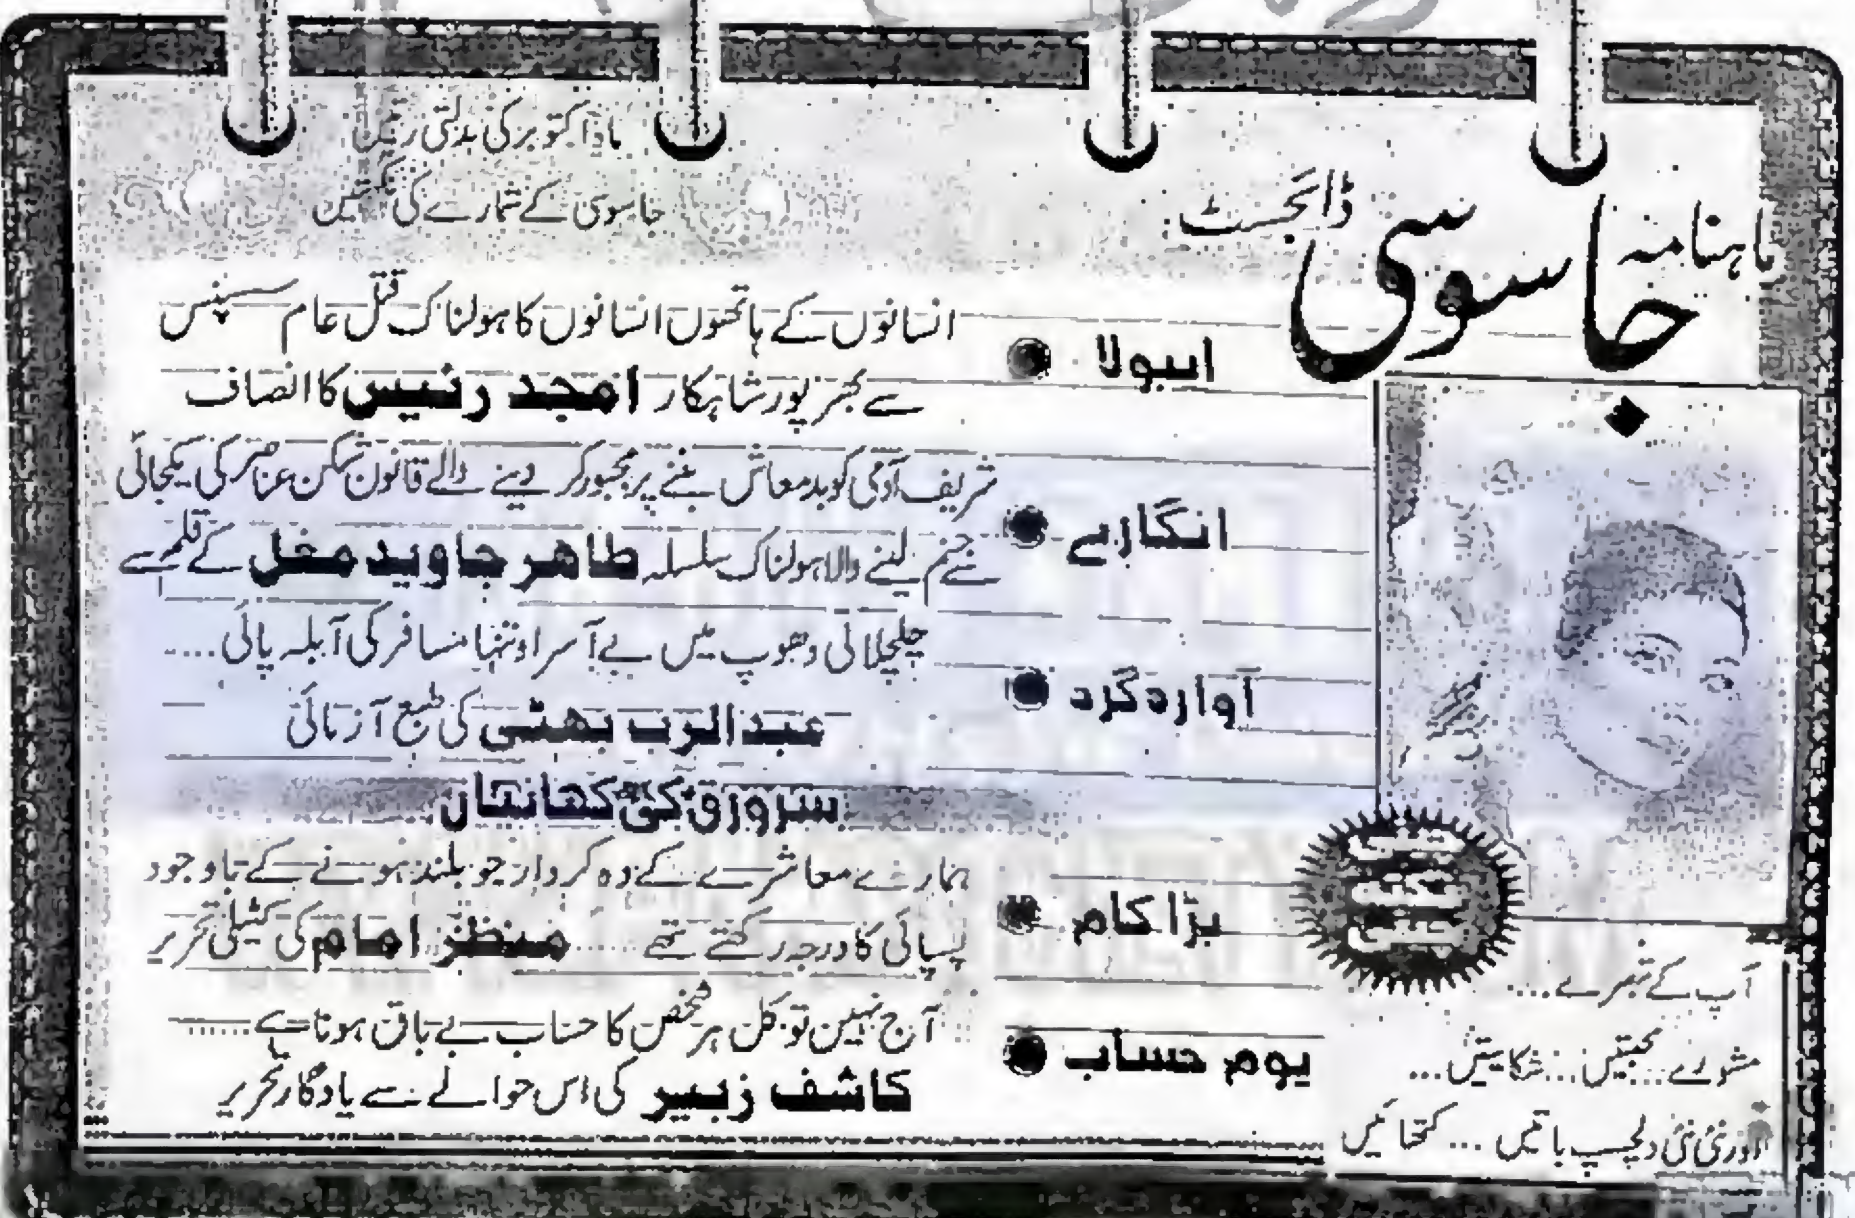 ماہنامہ جاسوسی ڈائجسٹ
ماہ اکتوبر کی بدلتی رتیں
جاسوسی کے شمارے کی
ایبولا
انسانوں کے ہاتھوں انسانوں کا ہولناک قتل عام سسپنس
سے بھرپور شاہکار امجد رئیس کا انصاف
انگارے
شریف آدمی کو بدمعاش بننے پر مجبور کر دینے والے قانون شکن عناصر کی یکجائی
سے جنم لینے والا ہولناک سلسلہ طاہر جاوید مغل کے قلم سے
آوارہ گرد
چلچلاتی دھوپ میں بے آسرا و تنہا مسافر کی آبلہ پائی ....
عبدالرب بھٹی کی طبع آزمائی
سرورق کی کہانیاں
بڑا کام
ہمارے معاشرے کے وہ کردار جو بلند ہونے کے باوجود
پسپائی کا درجہ رکھتے تھے ..... منظر امام کی کٹیلی تحریر
یوم حساب
آج نہیں تو کل ہر شخص کا حساب بے باق ہوتا ہے ......
کاشف زبیر کی اس حوالے سے یادگار تحریر
آپ کے تبصرے ....
مشورے ... محبتیں ... شکایتیں ...
اور نئی نئی دلچسپ باتیں ... کتھائیں